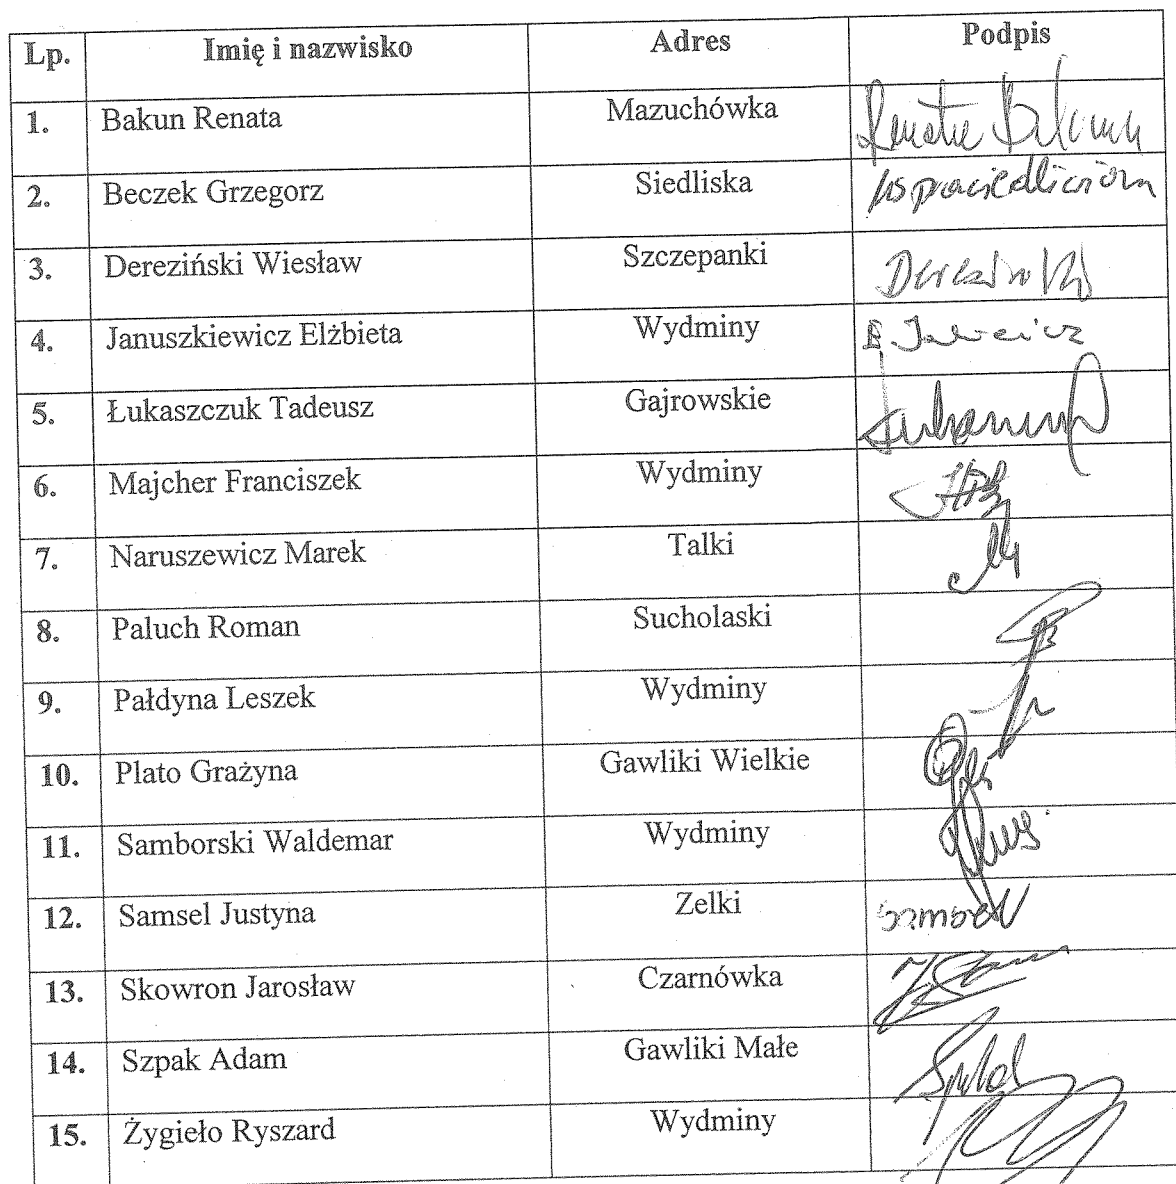 Lp. Imię i nazwisko Adres Podpis
1. Bakun Renata Mazuchówka Renata Bakun
2. Beczek Grzegorz Siedliska
3. Dereziński Wiesław Szczepanki
4. Januszkiewicz Elżbieta Wydminy
5. Łukaszczuk Tadeusz Gajrowskie
6. Majcher Franciszek Wydminy
7. Naruszewicz Marek Talki
8. Paluch Roman Sucholaski
9. Pałdyna Leszek Wydminy
10. Plato Grażyna Gawliki Wielkie
11. Samborski Waldemar Wydminy
12. Samsel Justyna Zelki Samsel
13. Skowron Jarosław Czarnówka
14. Szpak Adam Gawliki Małe
15. Żygieło Ryszard Wydminy